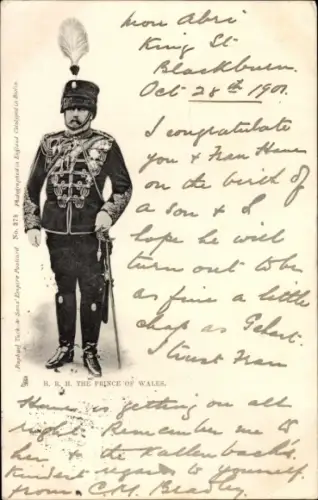 Mon Abri
King St
Blackburn.
Oct 28th 1901.
I congratulate
you & Frau Haus
on the birth of
a son & I
hope he will
turn out to be
as fine a little
chap as
I trust Frau
Haus is getting on all
right. Remember me to
her & the Kallenbach's.
Kindest regards to yourself
from C.M. Beasley.
H. R. H. THE PRINCE OF WALES.
Raphael Tuck & Sons' Empire Postcard No. 274 Photographed in England Chromoed in Berlin.